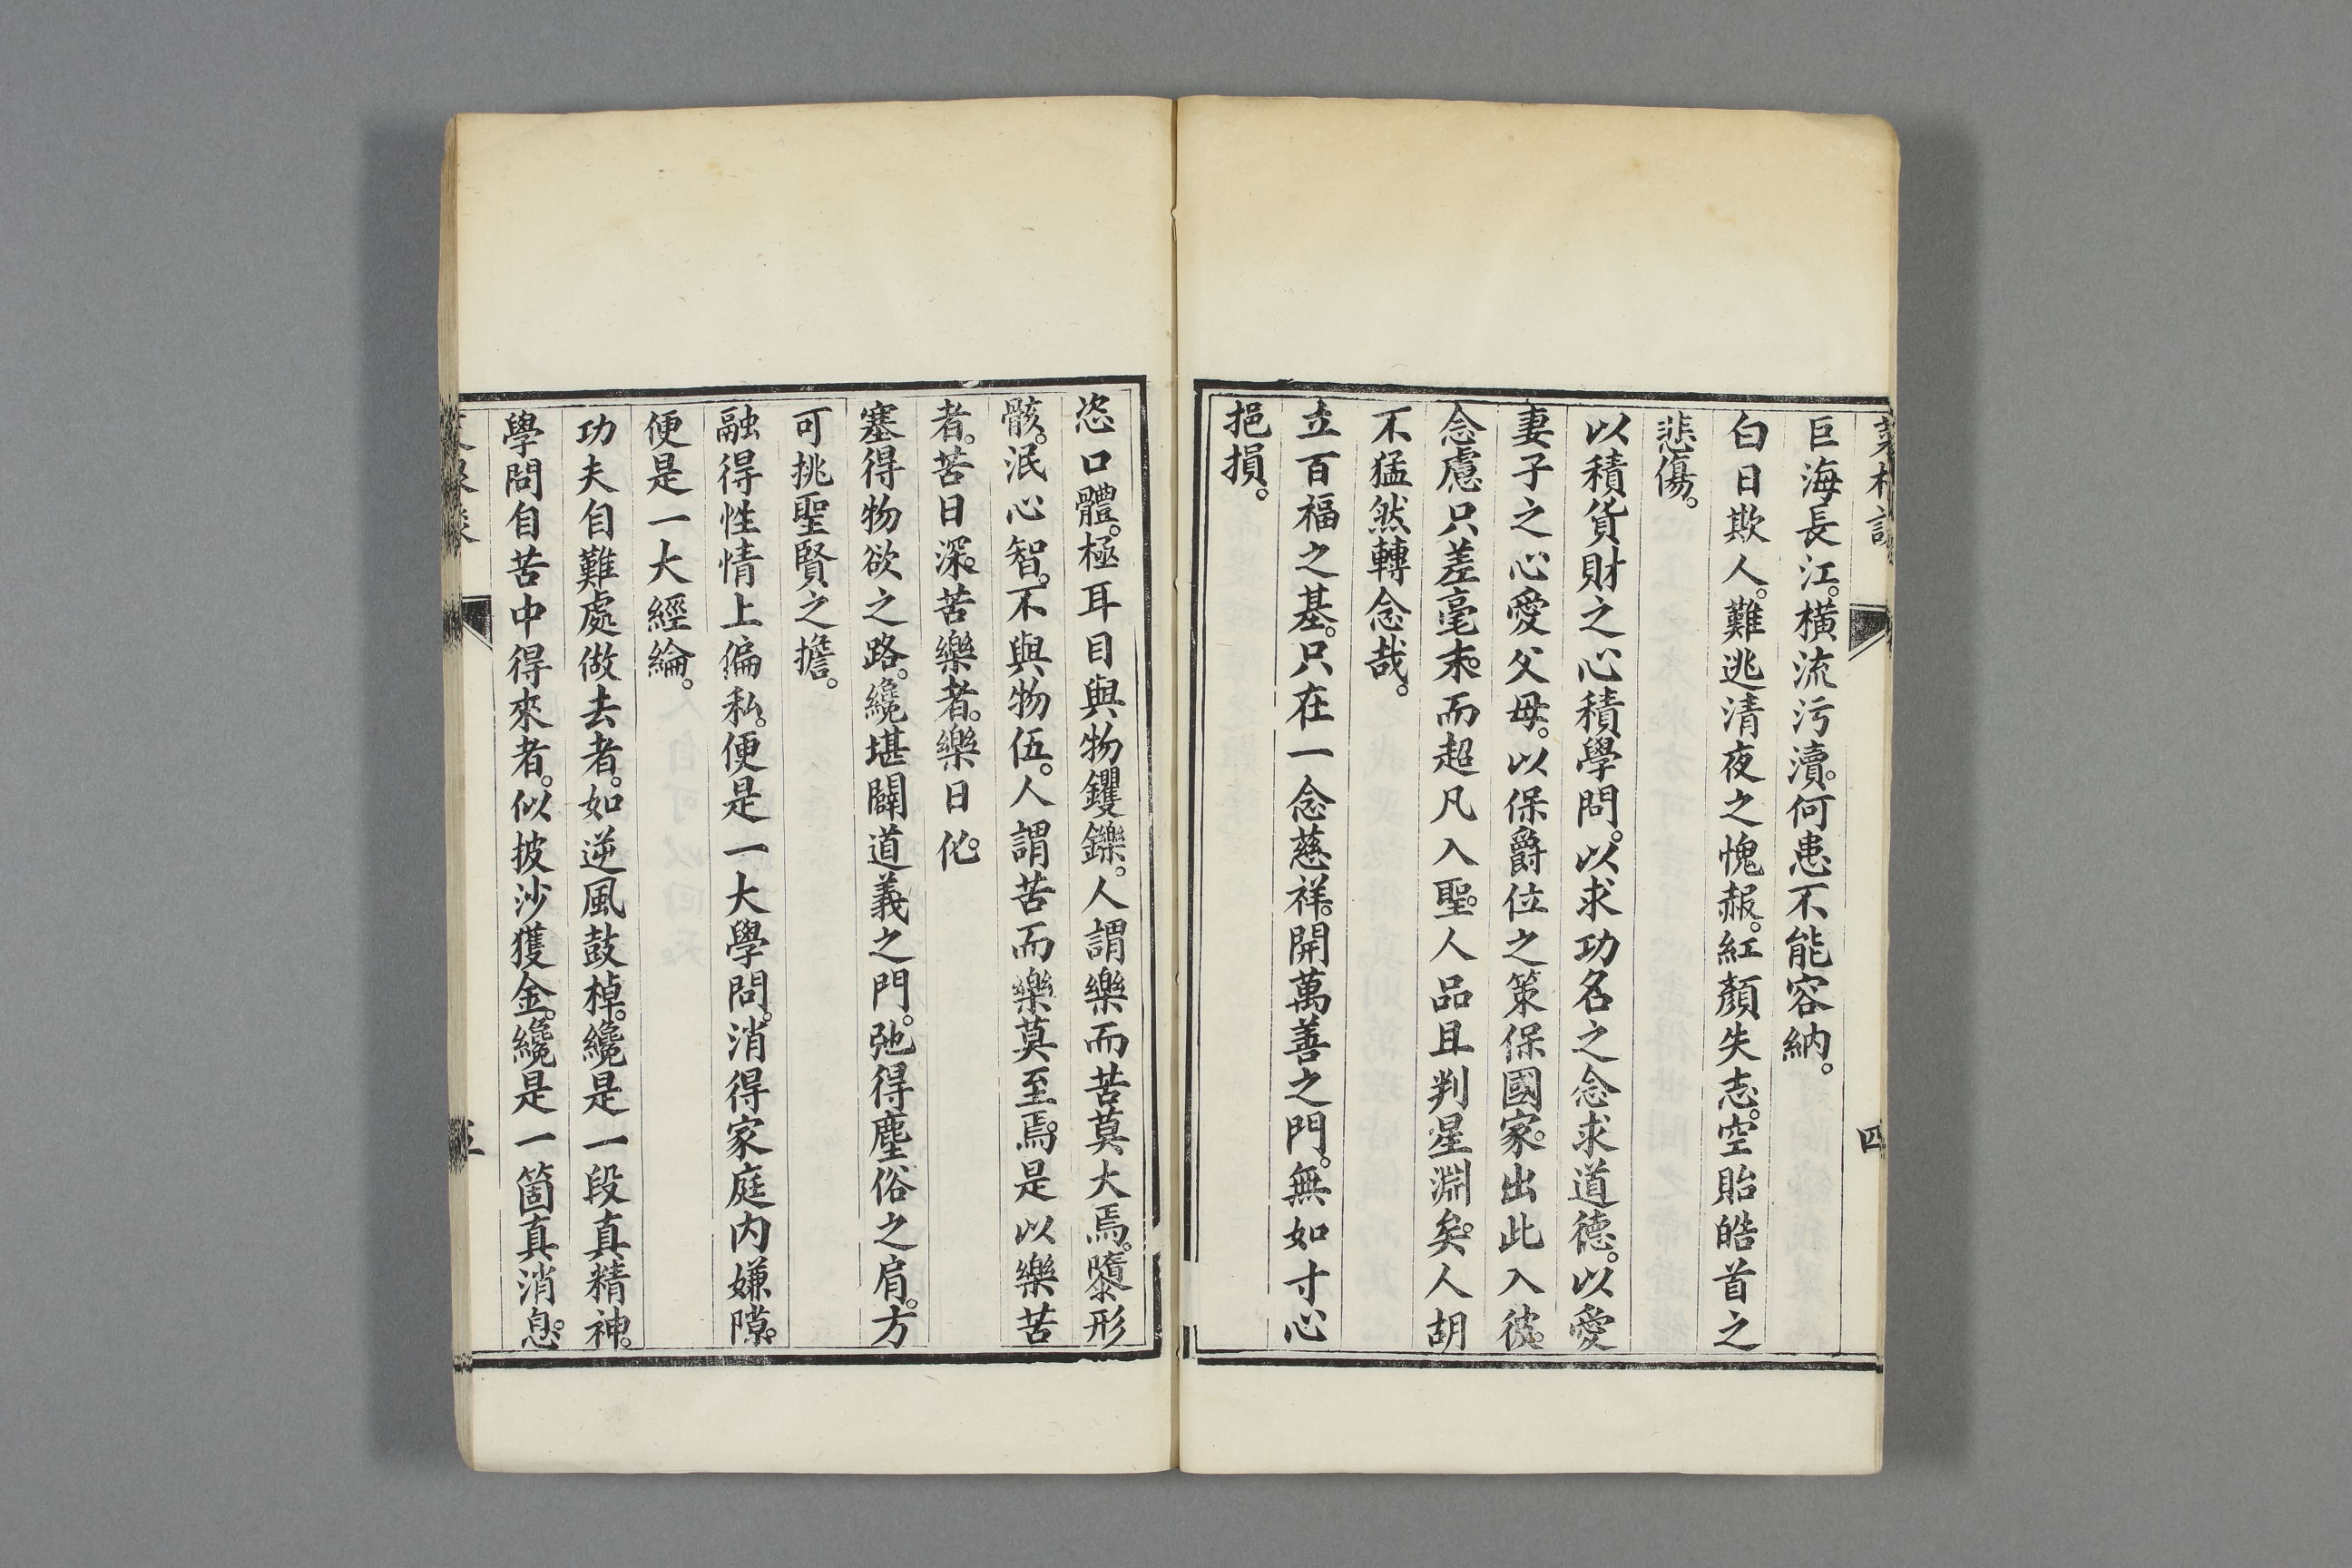 巨海長江。橫流污瀆。何患不能容納。
白日欺人。難逃清夜之愧赧。紅顏失志。空貽皓首之
悲傷。
以積貨財之心積學問。以求功名之念求道德。以愛
妻子之心愛父母。以保爵位之策保國家。出此入彼。
念慮只差毫末。而超凡入聖。人品且判星淵矣。人胡
不猛然轉念哉。
立百福之基。只在一念慈祥。開萬善之門。無如寸心
挹損。
四
恣口體。極耳目與物钁鑠。人謂樂而苦莫大焉。隳形
骸。泯心智。不與物伍。人謂苦而樂莫至焉。是以樂苦
者。苦日深。苦樂者。樂日化。
塞得物欲之路。纔堪闢道義之門。弛得塵俗之肩。方
可挑聖賢之擔。
融得性情上偏私。便是一大學問。消得家庭內嫌隙。
便是一大經綸。
功夫自難處做去者。如逆風鼓棹。纔是一段真精神。
學問自苦中得來者。似披沙獲金。纔是一箇真消息。